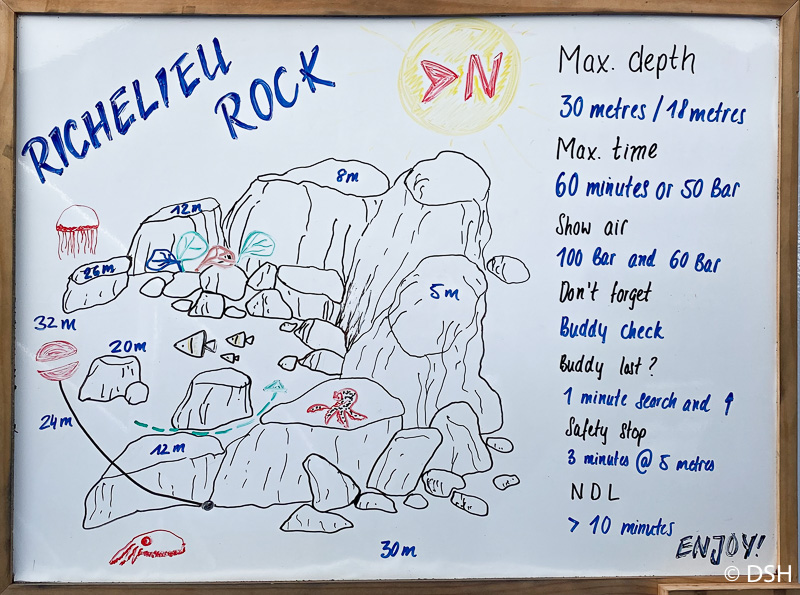 RICHELIEU
ROCK
N
Max. depth
30 metres / 18 metres
Max. time
60 minutes or 50 Bar
Show air
100 Bar and 60 Bar
Don't forget
Buddy check
Buddy lost?
1 minute search and ↑
Safety stop
3 minutes @ 5 metres
NDL
> 10 minutes
ENJOY!
8m
12m
26m
5m
32m
20m
24m
12m
30m
© DSH